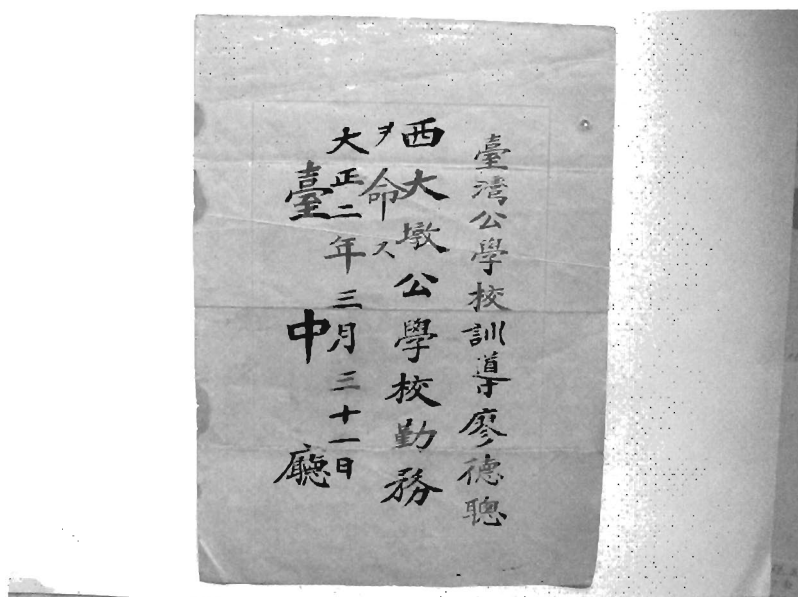 臺灣公學校訓導廖德聰
西大墩公學校勤務
ヲ命ス
大正二年三月三十一日
臺中廳